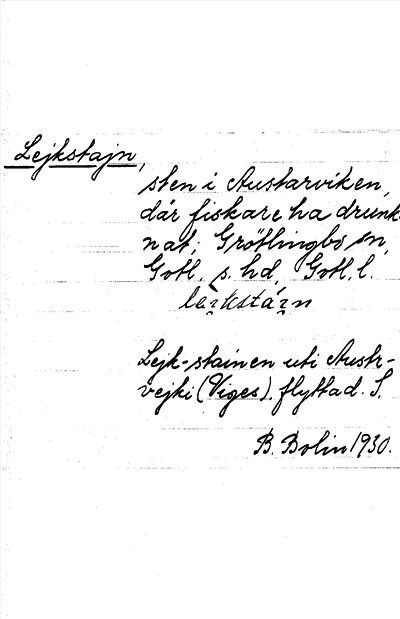 Lejkstajn,
sten i Austarviken,
där fiskare ha drunk-
nat; Grötlingbo sn,
Gotl. s. hd, Gotl. l.
lai̯kstái̯n
Lejk-stainen uti Austr-
vejki (Viges). flyttad. S.
B. Bolin 1930.